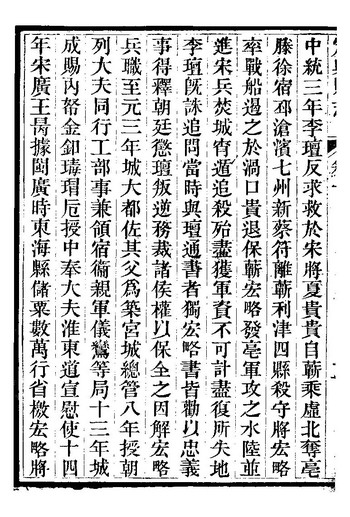 中統三年李璮反求救於宋將夏貴貴自蘄乘虛北奪亳
滕徐宿邳滄濱七州新蔡符離蘄利津四縣殺守將宏略
率戰船遏之於渦口貴退保蘄宏略發亳軍攻之水陸並
進宋兵焚城宵遁追殺殆盡獲軍資不可計盡復所失地
李璮旣誅追問當時與璮通書者獨宏略書皆勸以忠義
事得釋朝廷懲璮叛逆務裁諸侯權以保全之因解宏略
兵職至元三年城大都佐其父爲築宮城總管八年授朝
列大夫同行工部事兼領宿衞親軍儀鸞等局十三年城
成賜内帑金釦瑇瑁卮授中奉大夫淮東道宣慰使十四
年宋廣王昺據閩廣時東海縣儲粟數萬行省檄宏略將